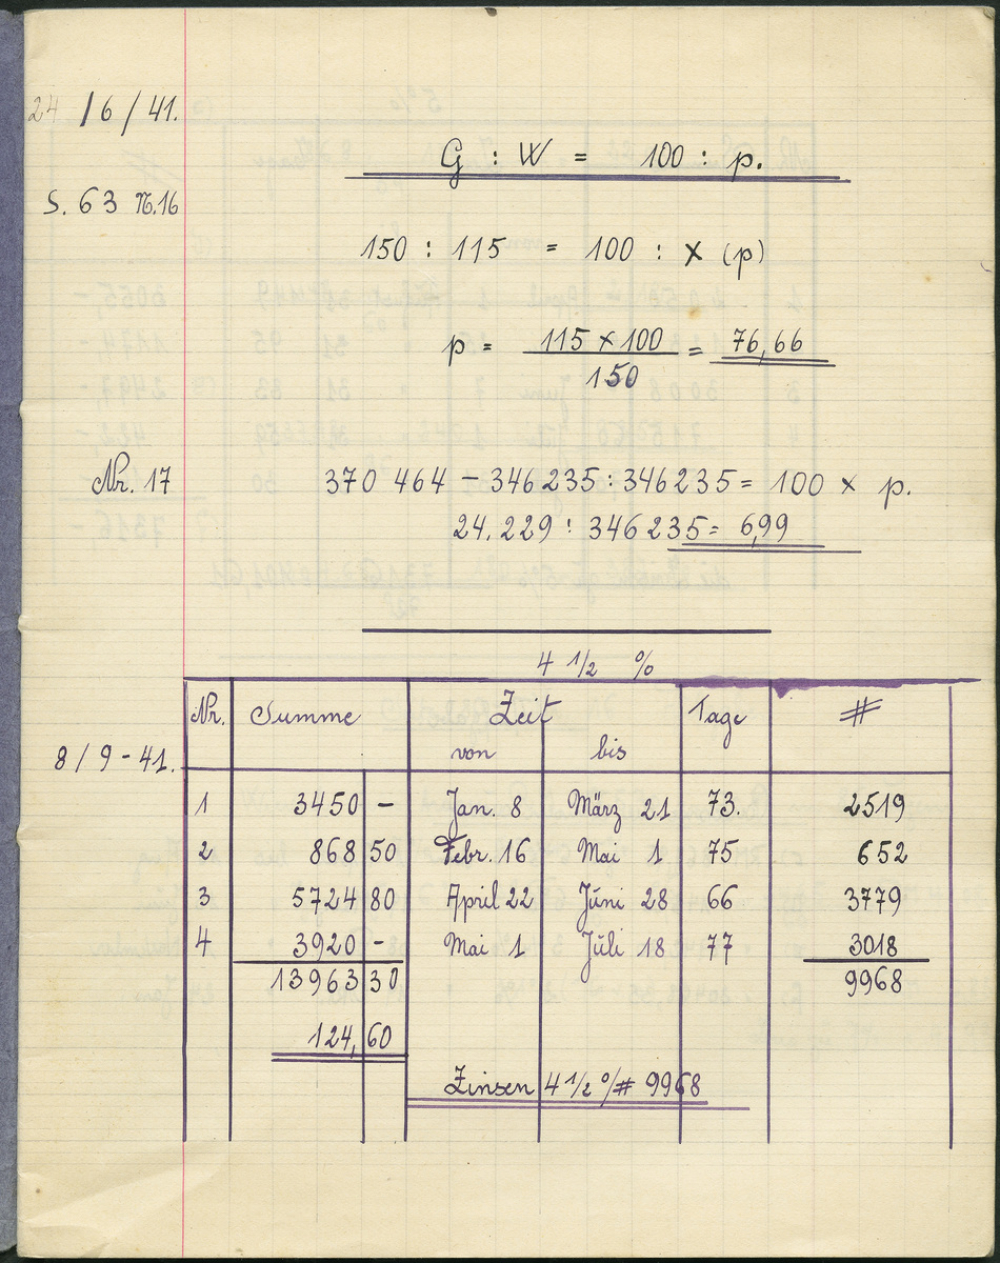 24/6/41.
G : W = 100 : p.
S. 63 N.16
150 : 115 = 100 : x (p)
p = 115 x 100 / 150 = 76,66
Nr. 17 370 464 – 346235 : 346235 = 100 x p.
24.229 : 346235 = 6,99
4 1/2 %
Nr. Summe Zeit Tage #
8/9-41. von bis
1 3450 – Jan. 8 März 21 73. 2519
2 868 50 Febr. 16 Mai 1 75 652
3 5724 80 April 22 Juni 28 66 3779
4 3920 – Mai 1 Juli 18 77 3018
13963 30 9968
124,60
Zinsen 4 1/2 % # 9968